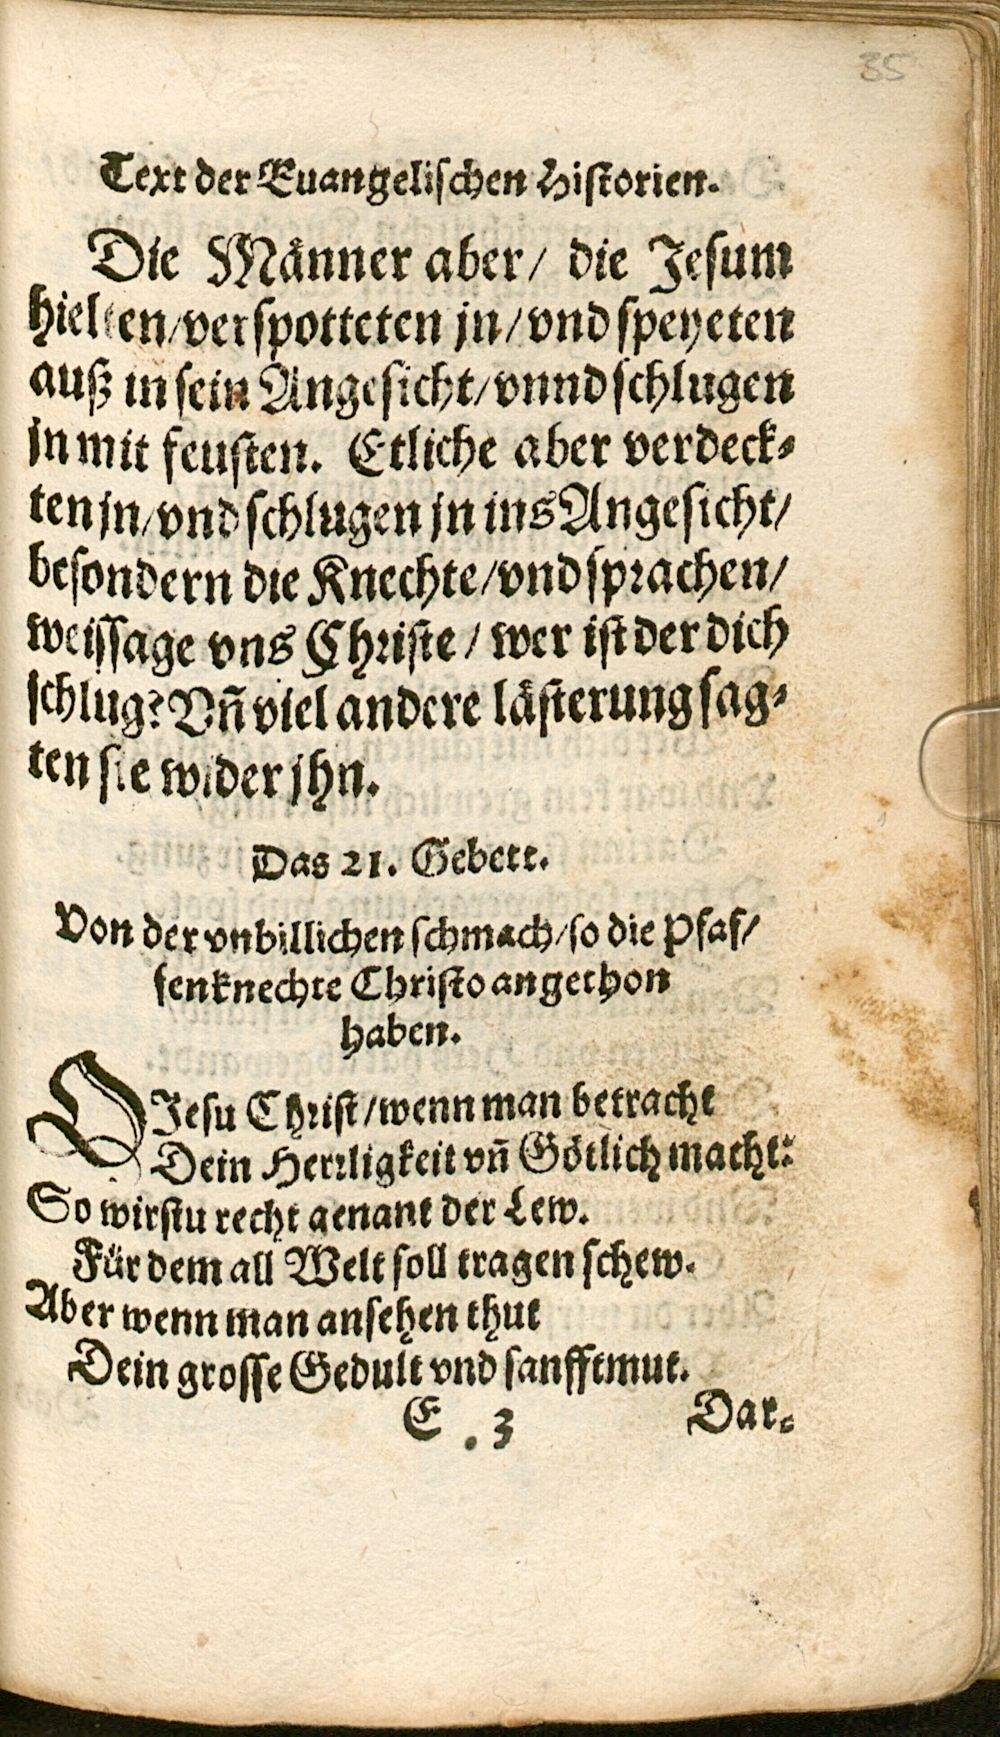 35
Text der Euangelischen Historien.
Die Männer aber / die Jesum
hielten / verspotteten jn / vnd speyeten
auß in sein Angesicht / vnnd schlugen
jn mit feusten. Etliche aber verdeck-
ten jn / vnd schlugen jn ins Angesicht /
besondern die Knechte / vnd sprachen /
weissage vns Christe / wer ist der dich
schlug? Vñ viel andere lästerung sag-
ten sie wider jhn.
Das 21. Gebett.
Von der vnbillichen schmach / so die Pfaf /
fenknechte Christo angethon
haben.
O Jesu Christ / wenn man betracht
Dein Herrligkeit vñ Götlich macht:
So wirstu recht genant der Lew.
Für dem all Welt soll tragen schew.
Aber wenn man ansehen thut
Dein grosse Gedult vnd sanfftmut.
E . 3 Dar-